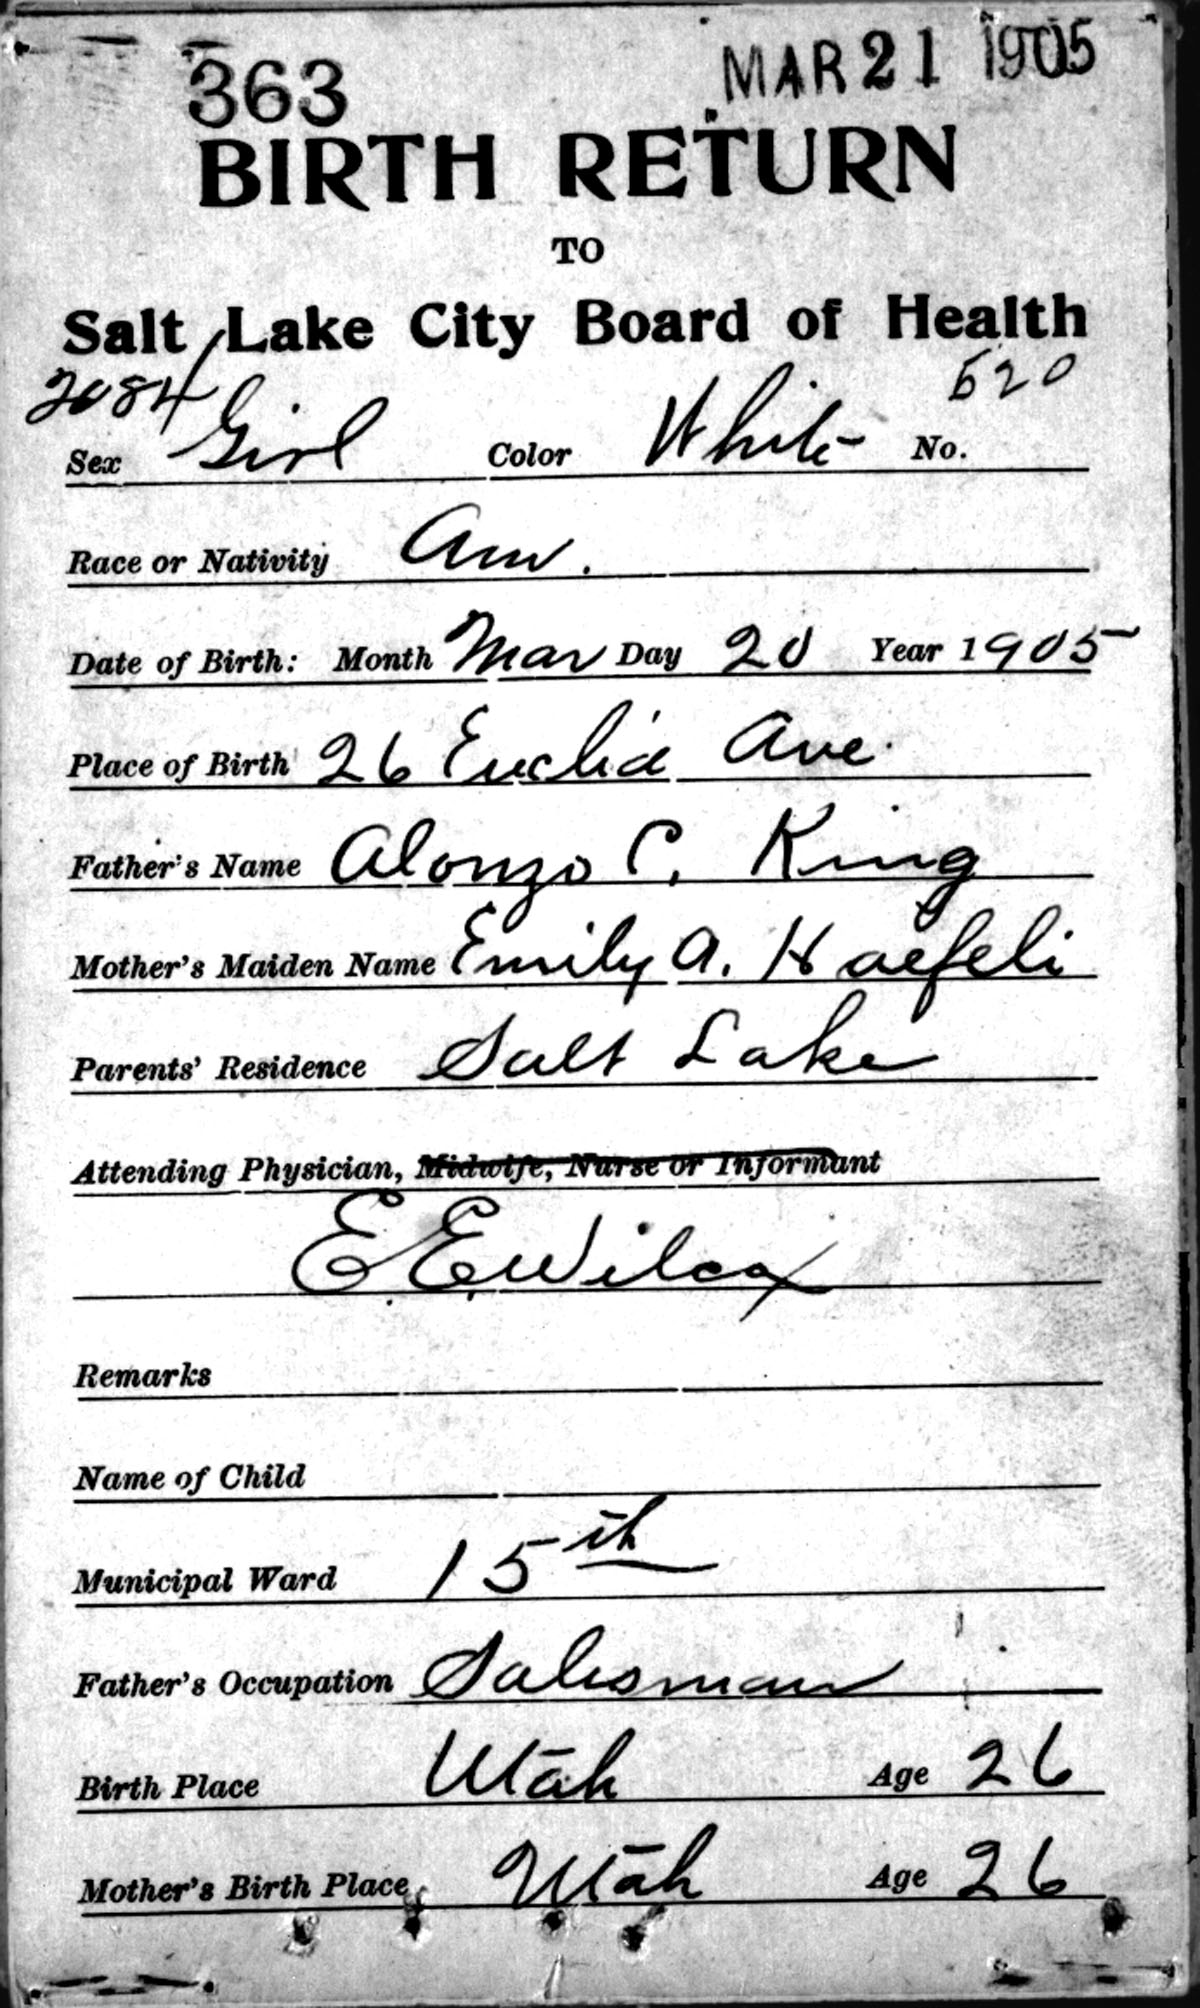 363 MAR 21 1905
BIRTH RETURN
TO
Salt Lake City Board of Health
2084 520
Sex Girl Color White No.
Race or Nativity Am.
Date of Birth: Month Mar Day 20 Year 1905
Place of Birth 26 Euclid Ave.
Father's Name Alonzo C. King
Mother's Maiden Name Emily A. Haefeli
Parents' Residence Salt Lake
Attending Physician, Midwife, Nurse or Informant
E. E. Wilcox
Remarks
Name of Child
Municipal Ward 15th
Father's Occupation Salesman
Birth Place Utah Age 26
Mother's Birth Place Utah Age 26